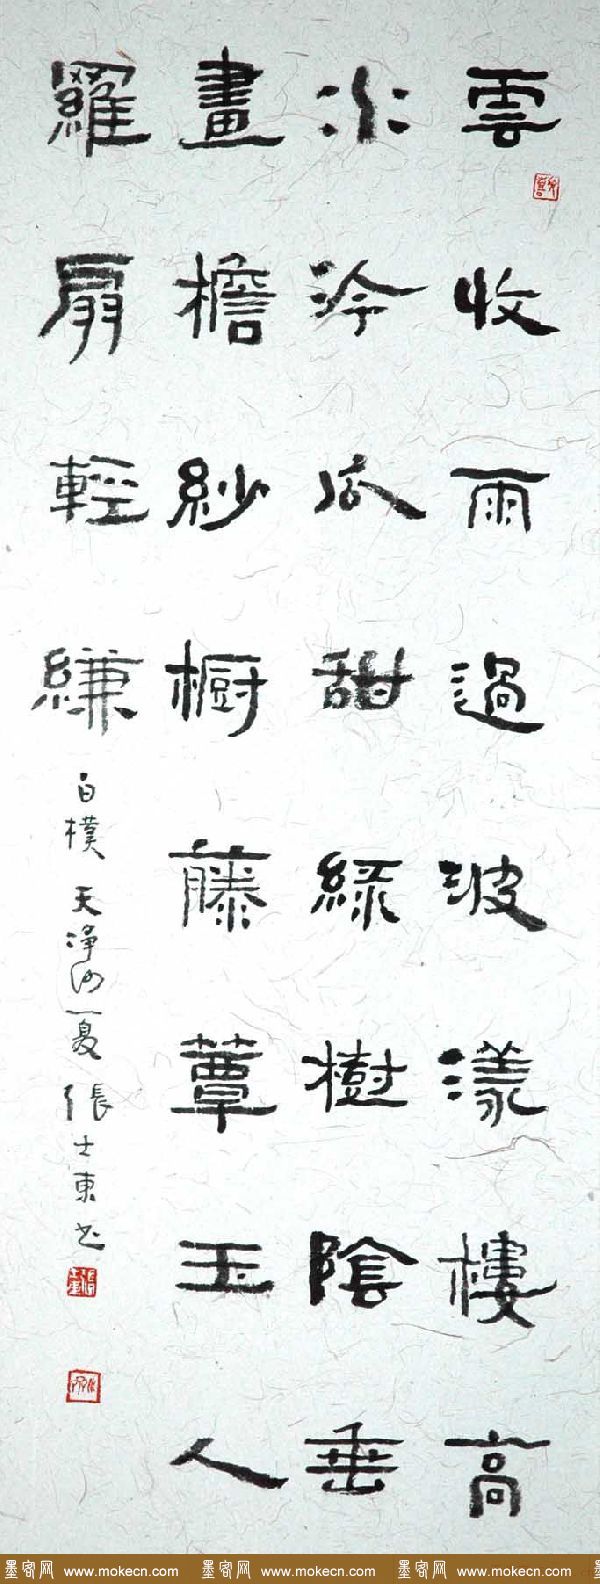 雲收雨過波漾樓高
水泠瓜甜綠樹陰垂
畫檐紗橱藤蕈玉人
羅扇輕縑
白樸 天净沙 夏 張士東书
墨客网 www.mokecn.com 墨客网 www.mokecn.com 墨客网 www.mokecn.com